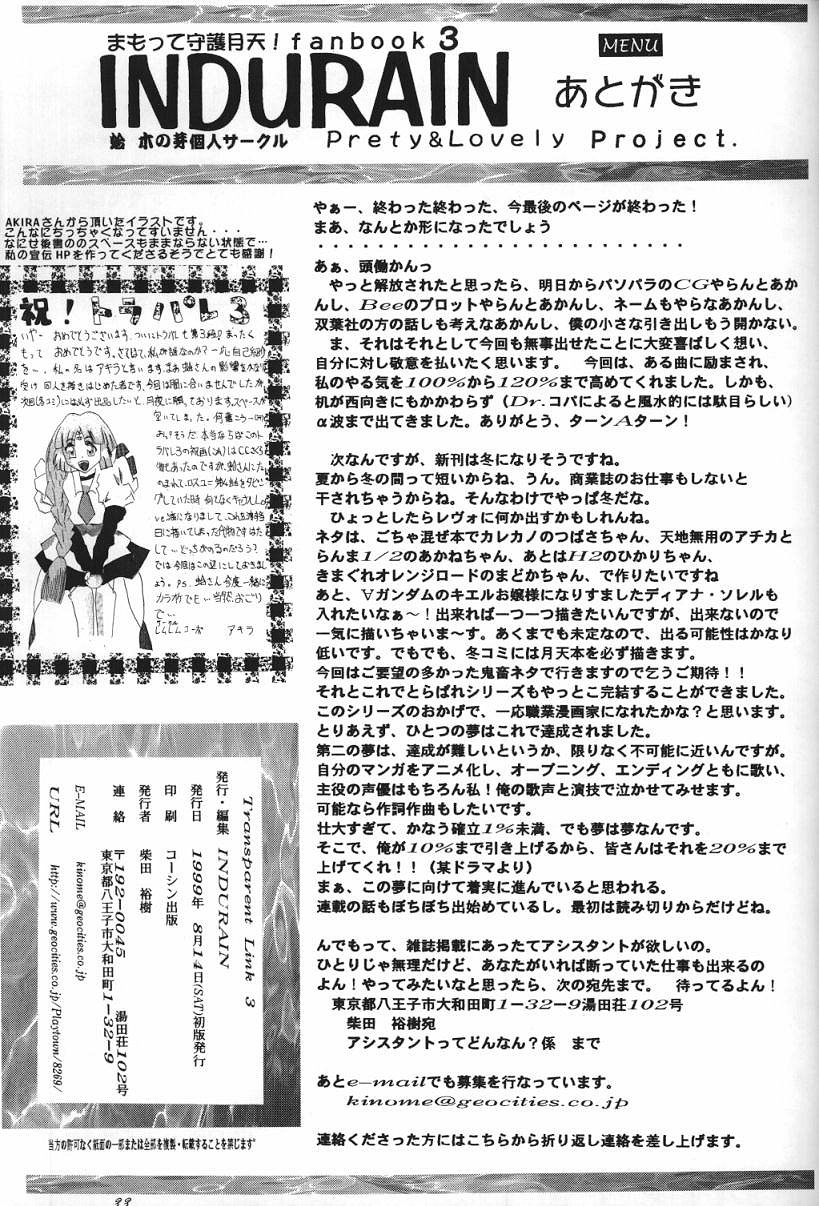 まもって守護月天！fanbook 3
INDURAIN
MENU
あとがき
蛤 木の芽個人サークル
Prety&Lovely Project.
AKIRAさんから頂いたイラストです。
こんなにちっちゃくなってすいません・・・
なにせ後書ののスペースもままならない状態で…
私の宣伝HPを作ってくださるそうでとても感謝！
祝！トラパレ3
アキラ
やぁー、終わった終わった、今最後のページが終わった！
まあ、なんとか形になったでしょう
・・・・・・・・・・・・・・・・・・・・・・・・・・
あぁ、頭働かんっ
やっと解放されたと思ったら、明日からパソパラのCGやらんとあか
んし、Beeのプロットやらんとあかんし、ネームもやらなあかんし、
双葉社の方の話しも考えなあかんし、僕の小さな引き出しもう開かない。
ま、それはそれとして今回も無事出せたことに大変喜ばしく想い、
自分に対し敬意を払いたく思います。 今回は、ある曲に励まされ、
私のやる気を100%から120%まで高めてくれました。しかも、
机が西向きにもかかわらず（Dr.コパによると風水的には駄目らしい）
α波まで出てきました。ありがとう、ターンAターン！
次なんですが、新刊は冬になりそうですね。
夏から冬の間って短いからね、うん。商業誌のお仕事もしないと
干されちゃうからね。そんなわけでやっぱ冬だな。
ひょっとしたらレヴォに何か出すかもしれんね。
ネタは、ごちゃ混ぜ本でカレカノのつばさちゃん、天地無用のアチカと
らんま1/2のあかねちゃん、あとはH2のひかりちゃん、
きまぐれオレンジロードのまどかちゃん、で作りたいですね
あと、∀ガンダムのキエルお嬢様になりすましたディアナ・ソレルも
入れたいなぁ～！出来れば一つ一つ描きたいんですが、出来ないので
一気に描いちゃいま～す。あくまでも未定なので、出る可能性はかなり
低いです。でもでも、冬コミには月天本を必ず描きます。
今回はご要望の多かった鬼畜ネタで行きますので乞うご期待！！
それとこれでとらぱれシリーズもやっとこ完結することができました。
このシリーズのおかげで、一応職業漫画家になれたかな？と思います。
とりあえず、ひとつの夢はこれで達成されました。
第二の夢は、達成が難しいというか、限りなく不可能に近いんですが。
自分のマンガをアニメ化し、オープニング、エンディングともに歌い、
主役の声優はもちろん私！俺の歌声と演技で泣かせてみせます。
可能なら作詞作曲もしたいです。
壮大すぎて、かなう確立1%未満、でも夢は夢なんです。
そこで、俺が10%まで引き上げるから、皆さんはそれを20%まで
上げてくれ！！（某ドラマより）
まぁ、この夢に向けて着実に進んでいると思われる。
連載の話もぼちぼち出始めているし。最初は読み切りからだけどね。
んでもって、雑誌掲載にあったてアシスタントが欲しいの。
ひとりじゃ無理だけど、あなたがいれば断っていた仕事も出来るの
よん！やってみたいなと思ったら、次の宛先まで。 待ってるよん！
東京都八王子市大和田町1－32－9湯田荘102号
柴田 裕樹宛
アシスタントってどんなん？係 まで
あとe-mailでも募集を行なっています。
kinome@geocities.co.jp
連絡くださった方にはこちらから折り返し連絡を差し上げます。
Transparent Link 3
発行・編集 INDURAIN
発行日 1999年 8月14日(SAT)初版発行
印刷 コーシン出版
発行者 柴田 裕樹
連絡 〒192-0045
東京都八王子市大和田町1－32－9
湯田荘102号
E-MAIL kinome@geocities.co.jp
URL http://www.geocities.co.jp/Playtown/8269/
当方の許可なく紙面の一部または全部を複製・転載することを禁じます
33